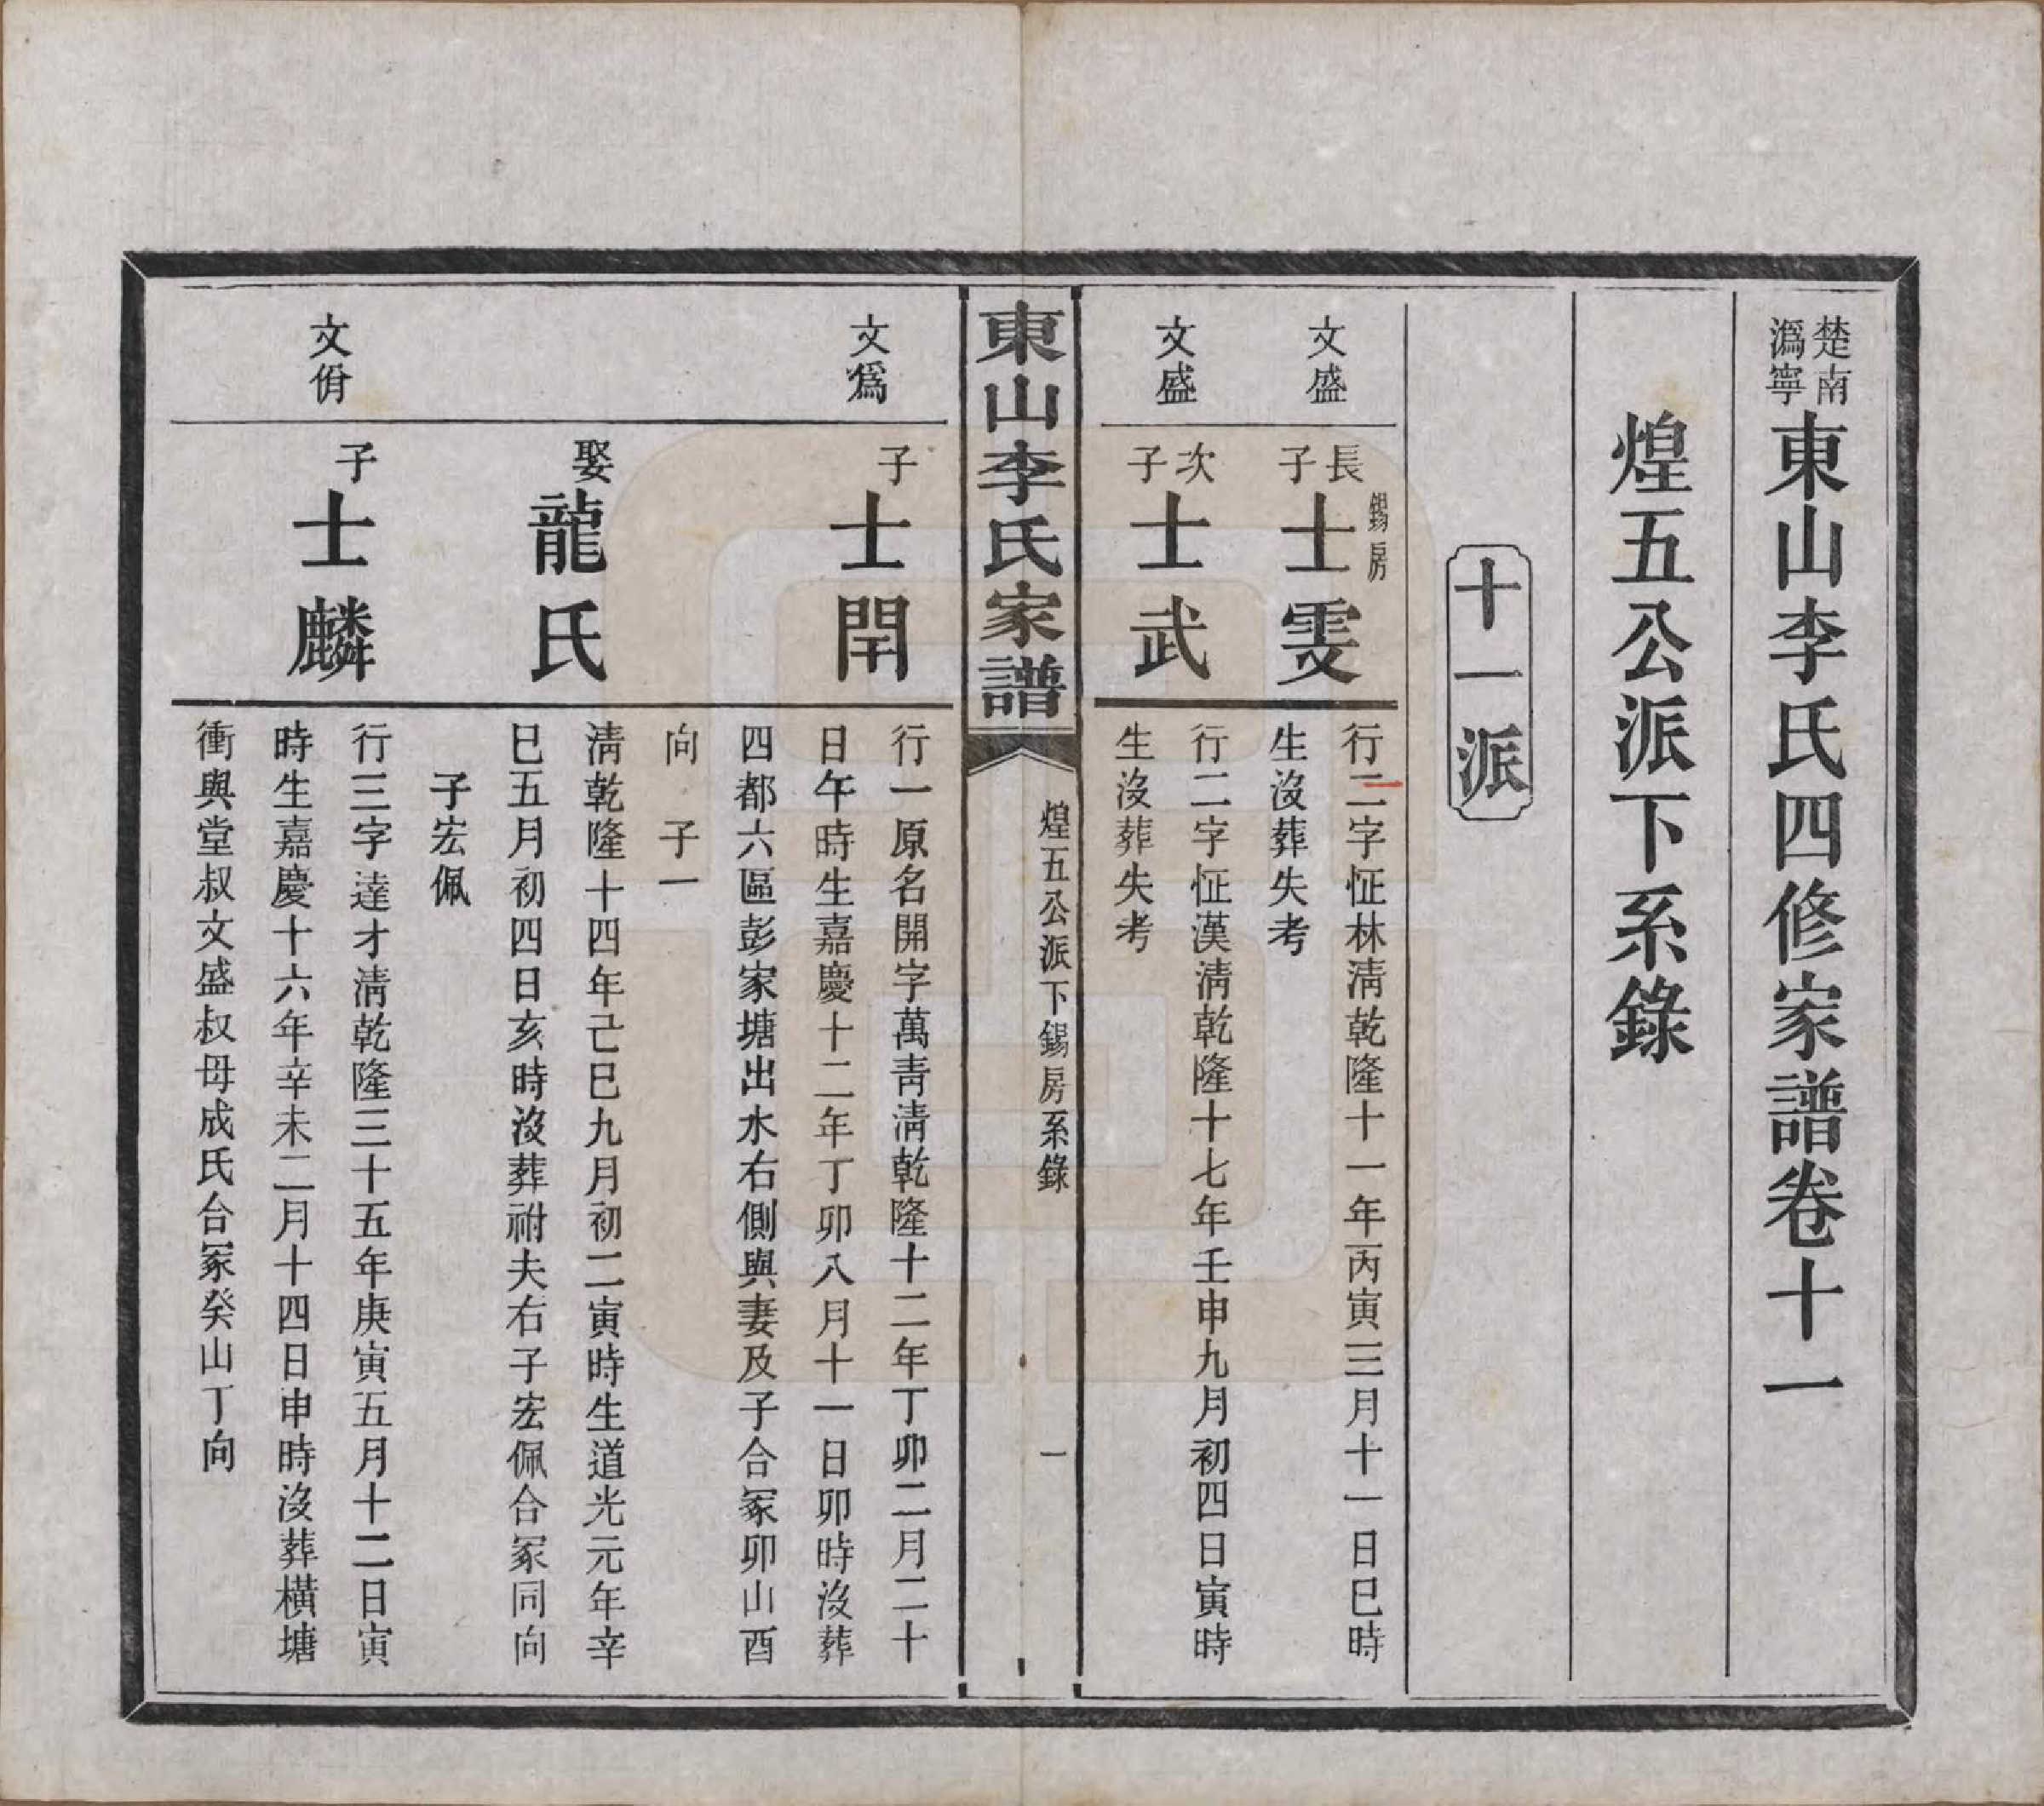 楚南
潙寧
東山李氏四修家譜卷十一
煌五公派下系錄
十一派
文盛
長子
錫房
士雯
行二字怔林淸乾隆十一年丙寅三月十一日巳時
生沒葬失考
文盛
次子
士武
行二字怔漢淸乾隆十七年壬申九月初四日寅時
生沒葬失考
東山李氏家譜
煌五公派下錫房系錄
一
文爲
子
士閈
行一原名開字萬靑淸乾隆十二年丁卯二月二十
日午時生嘉慶十二年丁卯八月十一日卯時沒葬
四都六區彭家塘出水右側與妻及子合冢卯山酉
向　子一
娶
龍氏
淸乾隆十四年己巳九月初二寅時生道光元年辛
巳五月初四日亥時沒葬祔夫右子宏佩合冢同向
子宏佩
文佾
子
士麟
行三字達才淸乾隆三十五年庚寅五月十二日寅
時生嘉慶十六年辛未二月十四日申時沒葬橫塘
衝與堂叔文盛叔母成氏合冢癸山丁向